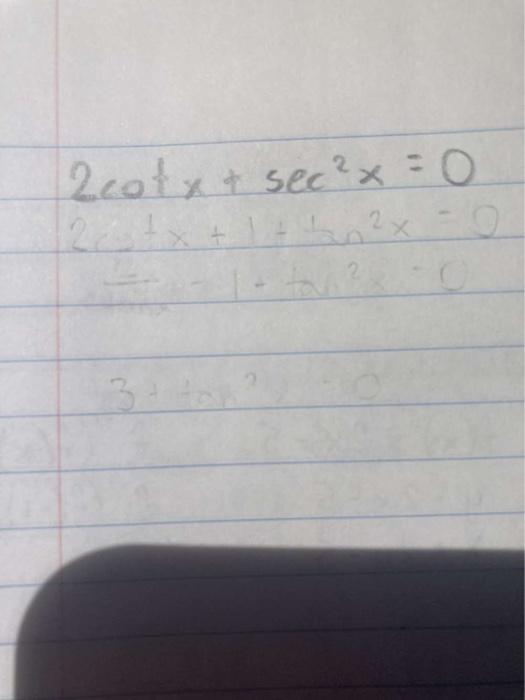 2cotx + sec²x = 0
2cotx + 1 + tan²x = 0
1 + tan²x = 0
3 + tan² = 0